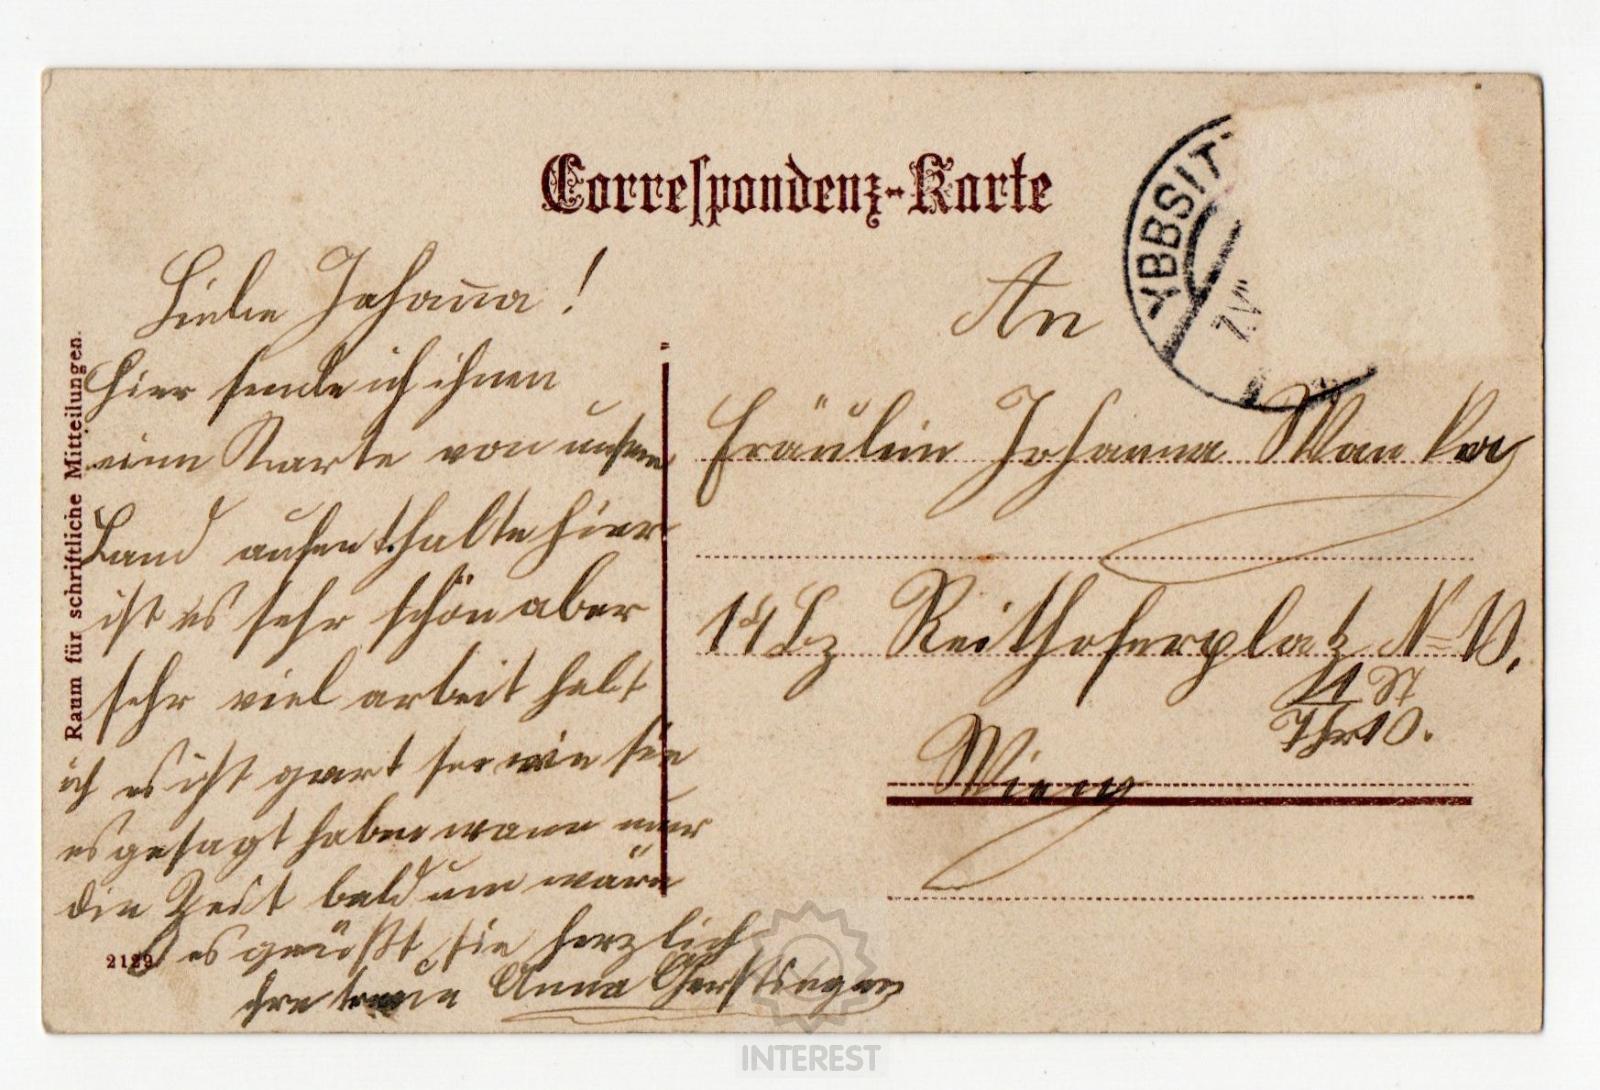 Correspondenz-Karte
YBBSIT
7.V
Raum für schriftliche Mitteilungen.
Liebe Johanna!
hier sende ich ihnen
eine Karte von unsern
Land aufenthalte hier
ist es sehr schön aber
sehr viel arbeit habt
ich es ist wie sie
es gesagt haben wann nur
die Zeit bald um wäre
es grüßt sie herzlich
ihre treue Anna
2129
An
Fräulein Johanna
14 Bz Reithoferplatz N= 10.
11 St
Thr 10.
Wien
INTEREST